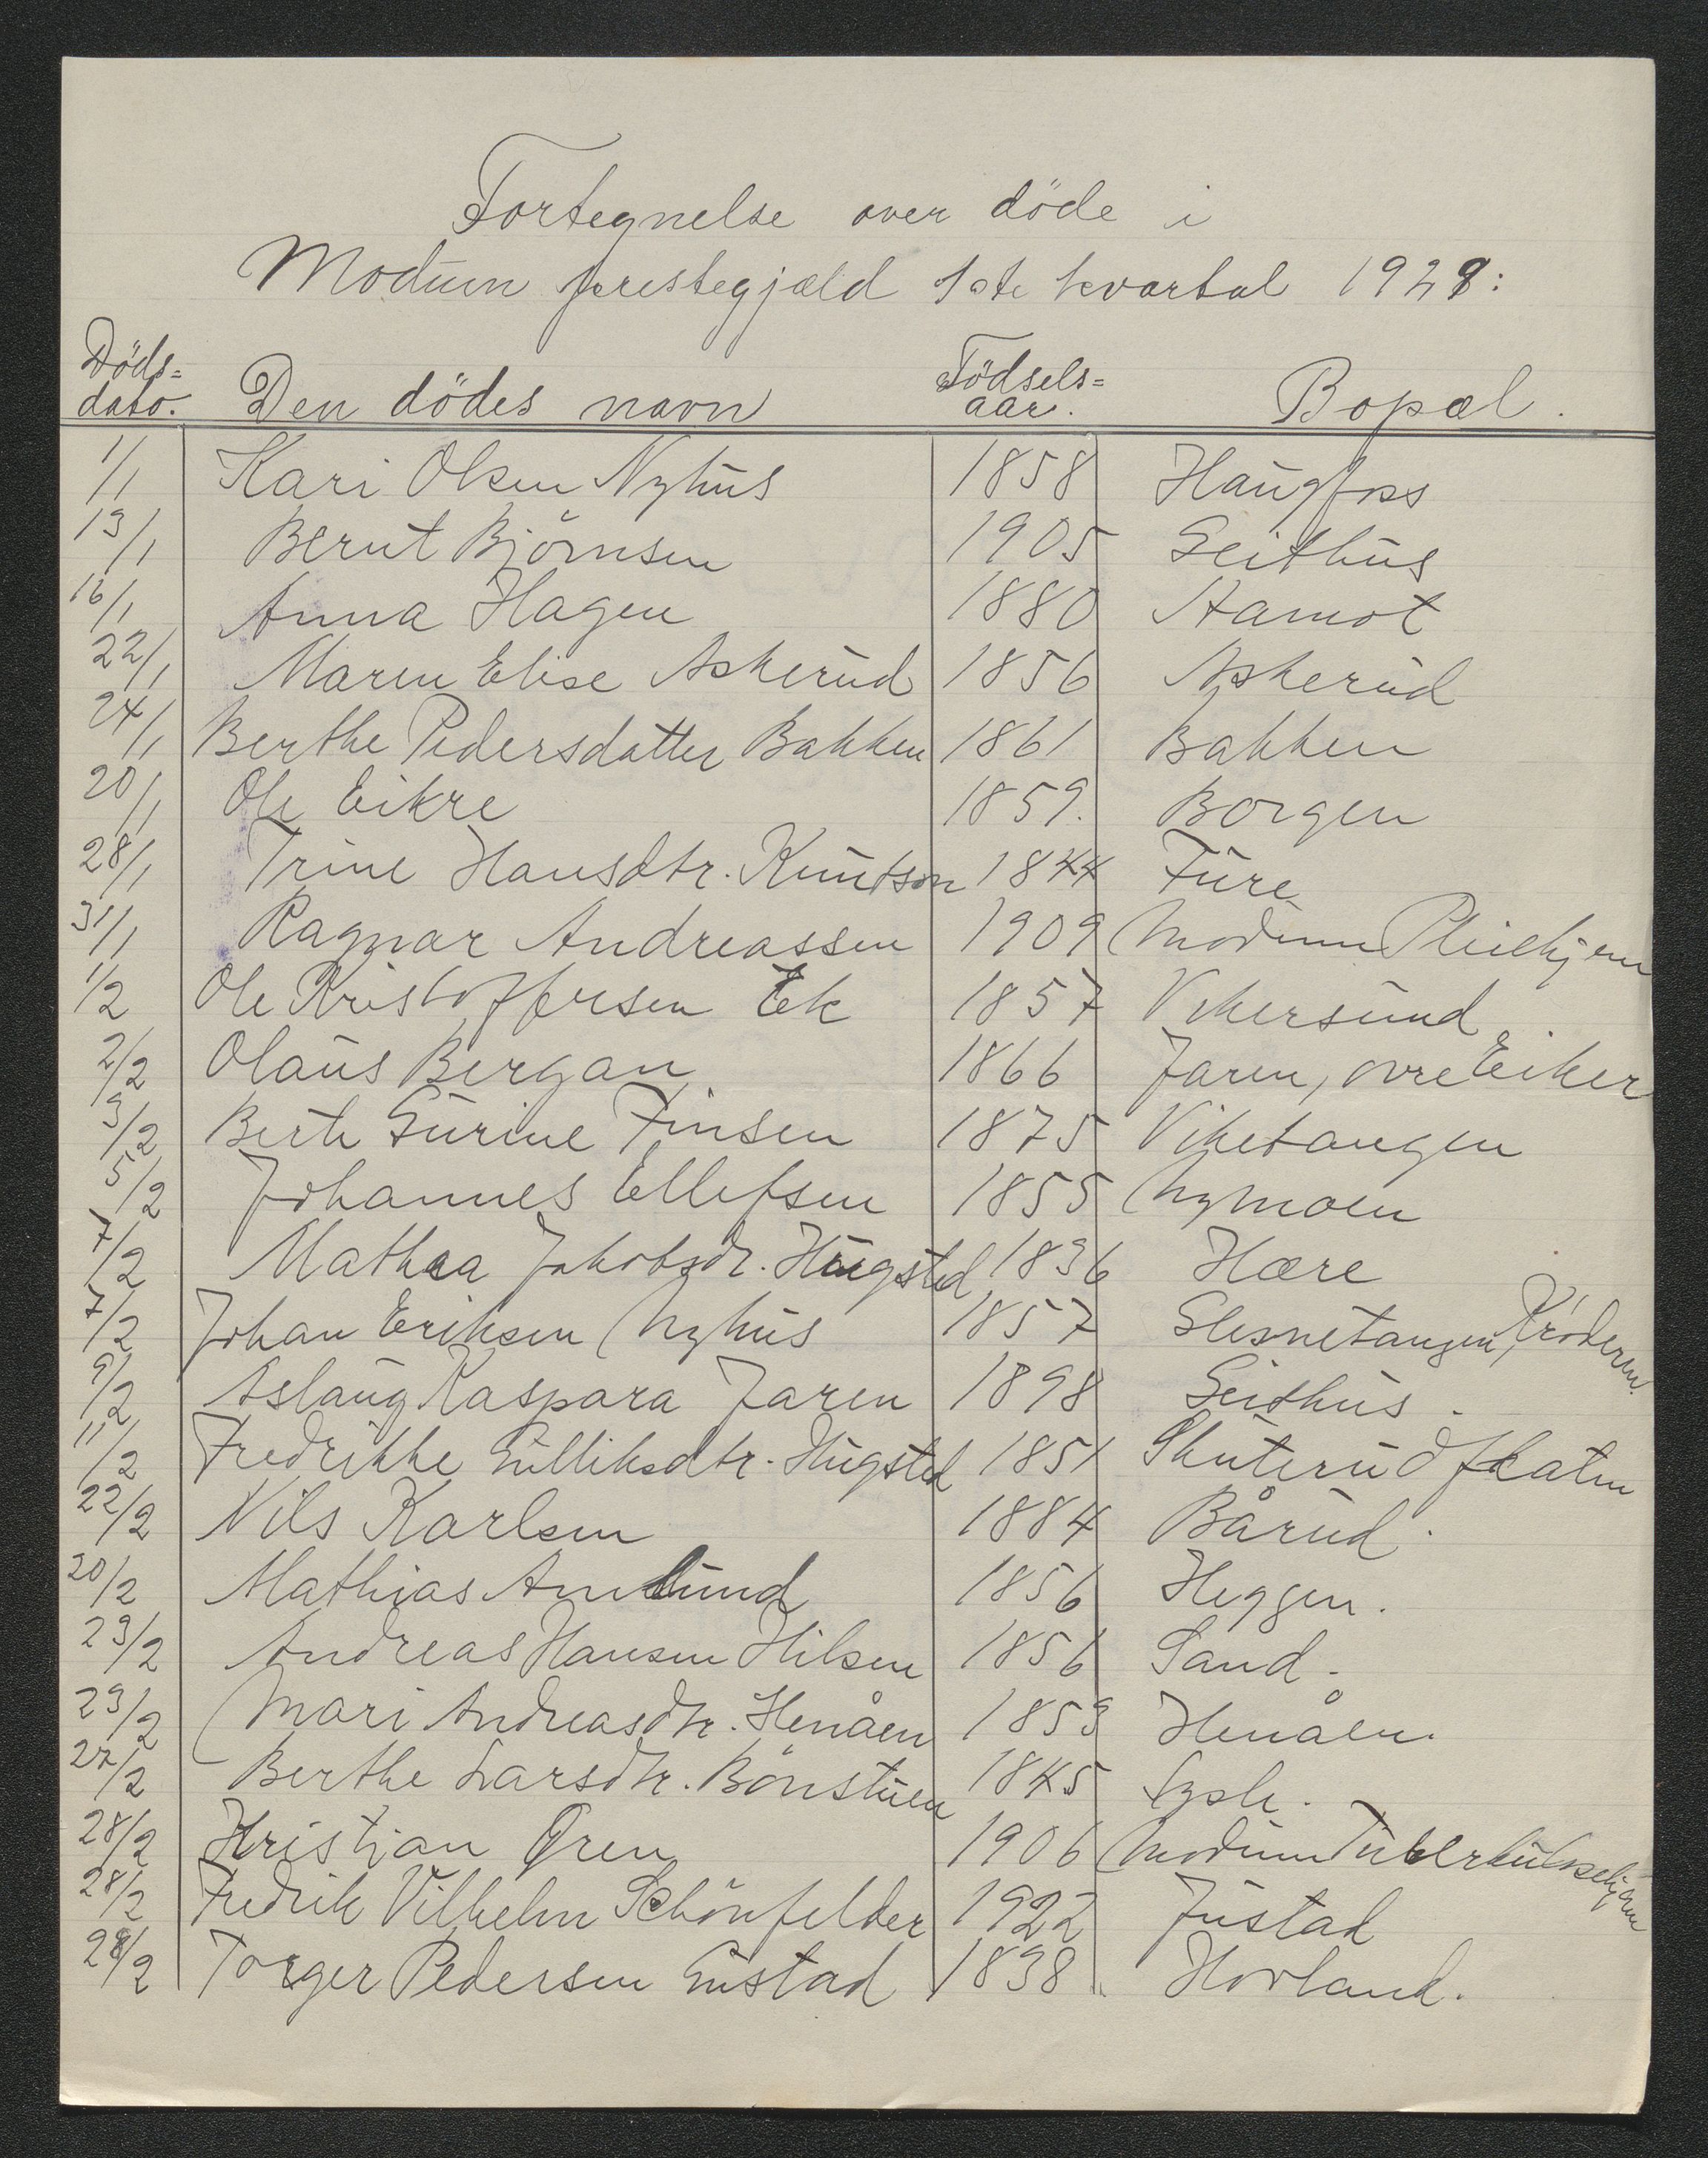 Fortegnelse over döde i
Modum prestegjæld 1ste kvartal 1928:
Döds= dato. Den dödes navn Födsels= aar. Bopæl.
1/1 Kari Olsen Nyhus 1858 Haugfoss
13/1 Bernt Björnsen 1905 Geithus
16/1 Anna Hagen 1880 Aamot
22/1 Maren Elise Askerud 1856 Askerud
24/1 Berthe Pedersdatter Bakken 1861 Bakken
20/1 Ole Eikre 1859. Borgen
28/1 Trine Hansdtr. Knutson 1844 Fure
31/1 Ragnar Andreassen 1909 Modum Pleiehjem
1/2 Ole Kristoffersen Ek 1857 Vikersund
2/2 Olaus Bergan 1866 Jaren, øvre Eiker
3/2 Berte Gurine Finsen 1875 Viketangen
5/2 Johannes Ellefsen 1855 Nymoen
7/2 Mathea Jakobsdr. Hugsted 1836 Hære
7/2 Johan Eriksen Nyhus 1857 Slesnetangen, Kröderen.
9/2 Aslaug Kaspara Jaren 1898 Geithus.
11/2 Fredrikke Gulliksdtr. Hugsted 1851 Skuterudflaten
22/2 Nils Karlsen 1884 Bårud.
20/2 Mathias Amlund 1856 Heggen.
23/2 Andreas Hansen Hilsen 1856 Sand.
23/2 Mari Andreasdtr. Henåen 1853 Henåen.
27/2 Berthe Larsdtr. Bönstuen 1845
28/2 Kristian Øren 1906 Modum Tuberkulosehjem
28/2 Fredrik Vilhelm Schönfelder 1922 Justad
28/2 Torger Pedersen Gustad 1838 Hovland.